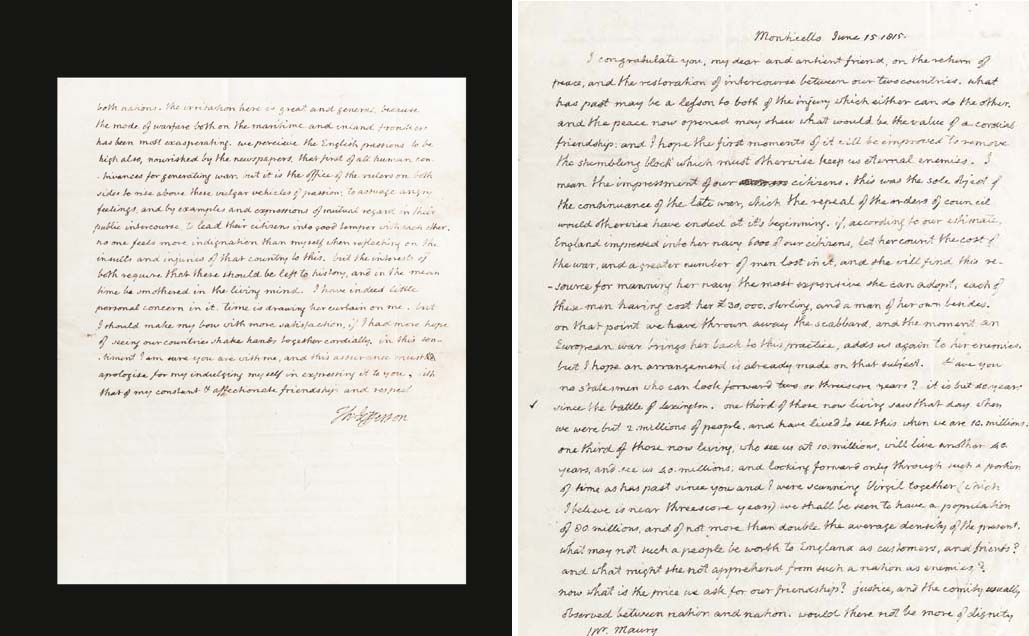 both nations. the irritation here is great and general, because
the mode of warfare both on the maritime and inland frontiers
has been most exasperating. we percieve the English passions to be
high also, nourished by the newspapers, that first of all human con-
-trivances for generating war. but it is the office of the rulers on both
sides to rise above these vulgar vehicles of passion; to assuage angry
feelings, and by examples and expressions of mutual regard in their
public intercourse, to lead their citizens into good temper with each other.
no one feels more indignation than myself when reflecting on the
insults and injuries of that country to this. but the interests of
both require that these should be left to history, and in the mean
time be smothered in the living mind. I have indeed little
personal concern in it. time is drawing her curtain on me. but
I should make my bow with more satisfaction, if I had more hope
of seeing our countries shake hands together cordially. in this sen-
-timent I am sure you are with me, and this assurance must
apologise for my indulging myself in expressing it to you, with
that of my constant & affectionate friendship and respect
Th: Jefferson
Monticello June 15. 1815.
I congratulate you, my dear and antient friend, on the return of
peace, and the restoration of intercourse between our two countries. what
has past may be a lesson to both of the injury which either can do the other,
and the peace now opened may shew what would be the value of a cordial
friendship: and I hope the first moments of it will be improved to remove
the stumbling block which must otherwise keep us eternal enemies. I
mean the impressment of our citizens. this was the sole object of
the continuance of the late war, which the repeal of the orders of council
would otherwise have ended at it's beginning. if, according to our estimate,
England impressed into her navy 6000 of our citizens, let her count the cost of
the war, and a greater number of men lost in it, and she will find this re-
-source for manning her navy the most expensive she can adopt, each of
these men having cost her £30,000. sterling, and a man of her own besides.
on that point we have thrown away the scabbard, and the moment an
European war brings her back to this practice, adds us again to her enemies.
but I hope an arrangement is already made on that subject. Have you
no statesmen who can look forward two or threescore years? it is but 40 years
since the battle of Lexington. one third of those now living saw that day, when
we were but 2. millions of people, and have lived to see this, when we are 10. millions.
one third of those now living, who see us at 10. millions, will live another 40.
years, and see us 40. millions; and looking forward only through such a portion
of time as has past since you and I were scanning Virgil together (which
I believe is near threescore years) we shall be seen to have a population
of 80. millions, and of not more than double the average density of the present.
what may not such a people be worth to England as customers, and friends?
and what might she not apprehend from such a nation as enemies?
now what is the price we ask for our friendship? justice, and the comity usually
observed between nation and nation. would there not be more of dignity
Mr. Maury